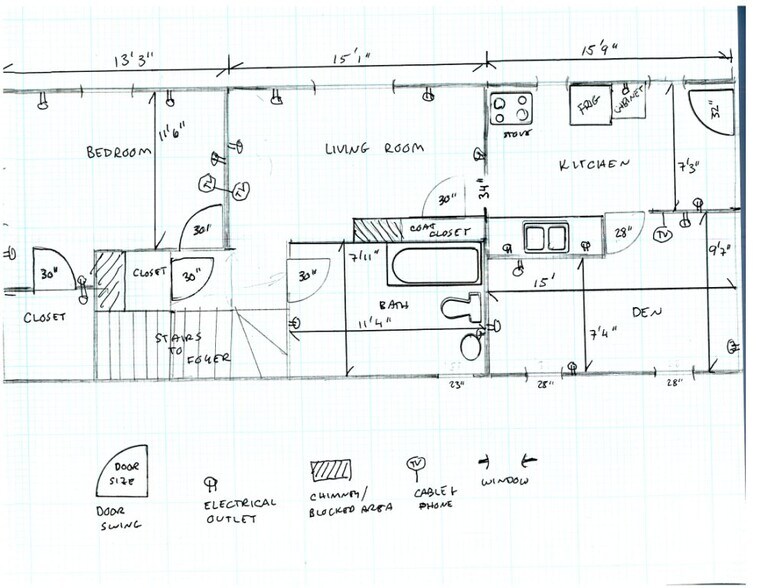 13'3" 15'1" 15'9"
BEDROOM
11'6"
LIVING ROOM
STOVE
FRIG
CABINET
32"
KITCHEN
7'3"
TV TV
34"
30"
30"
COAT
CLOSET
28"
TV
9'7"
30"
CLOSET
30"
30"
7'11"
BATH
15'
CLOSET
STAIRS
TO
FOYER
11'4"
7'4"
DEN
23" 28" 28"
DOOR
SIZE
DOOR
SWING
ELECTRICAL
OUTLET
CHIMNEY/
BLOCKED AREA
TV
CABLE &
PHONE
WINDOW